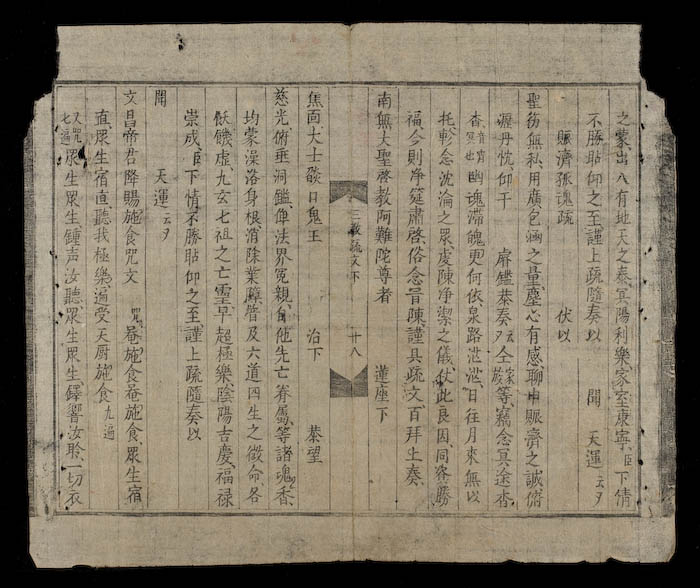 之蒙、出入有地天之泰、冥陽利樂、家室康寧、臣下情
不勝瞻仰之至謹上疏隨奏以 聞 天運 云夕
賑濟孤魂疏 伏以
聖衡無私、用廣包涵之量、塵心有感、聊申賑濟之誠、俯
瀝丹忱仰干 扆鑑恭奏 又云 仝 家族 等、竊念冥途杳
杳、冥出幽魂滯魄、更何依、泉路茫茫、日往月來無以
托、軫念沈淪之眾、虔陳淨潔之儀、仗此良因、同霑勝
福、今則淨筵肅啓、俗念晋陳、謹具疏文、百拜上奏、
南無大聖啓教阿難陀尊者 蓮座下
三教疏文下 十八
焦面大士燄口鬼王 治下 恭望
慈光俯垂洞鑑、俾法界冤親、自他先亡眷屬、等諸魂香、
均蒙澡洛身根、消除業障、普及六道四生之微命、各
飫饑虛、九玄七祖之亡靈、早超極樂、陰陽吉慶、福禄
崇成、臣下情不勝瞻仰之至、謹上疏隨奏以
聞 天運 云夕
文昌帝君降賜施食咒文 咒 菴施食菴施食、眾生宿
直眾生宿直聽我極樂遍受天厨施食 九遍
又咒七遍 眾生眾生鍾声汝聽眾生眾生、鐸響汝聆、一切衣